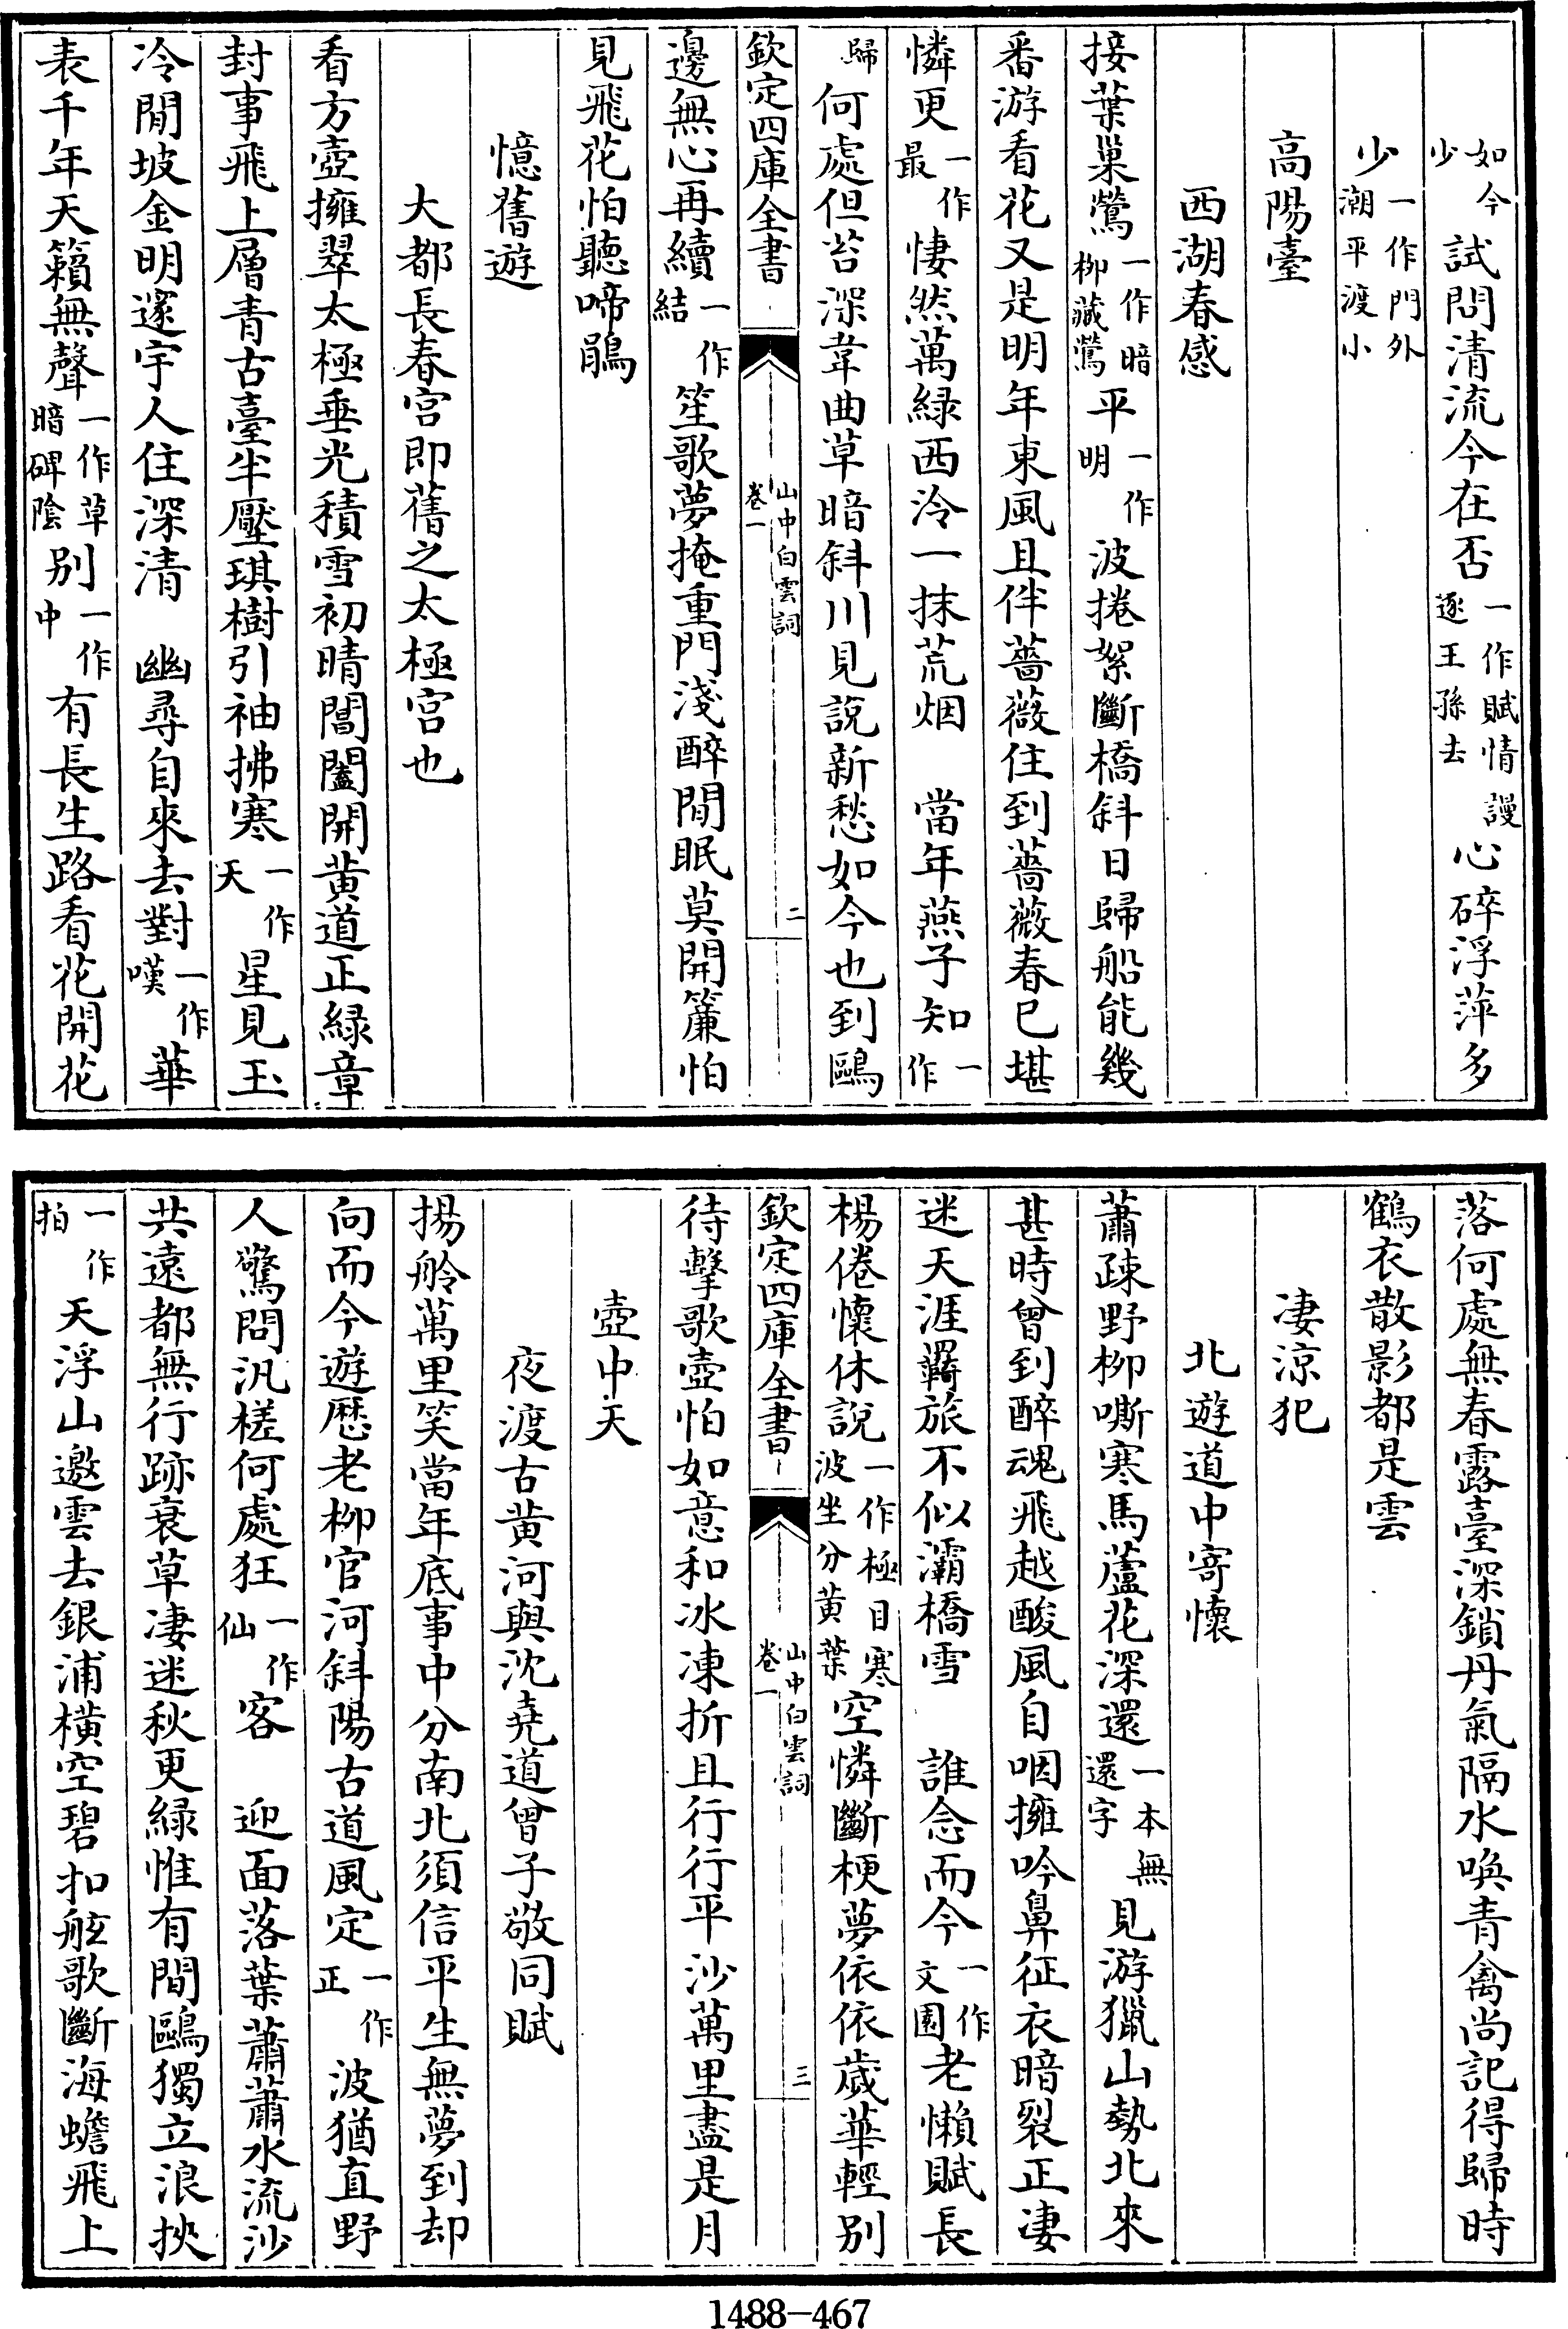 如今少試問清流今在否一作賦情謾逐王孫去心碎浮萍多
少一作門外潮平渡小
高陽臺
西湖春感
接葉巢鶯一作暗柳藏鶯平一作明波捲絮斷橋斜日歸船能幾
番游看花又是明年東風且伴薔薇住到薔薇春已堪
憐更一作最悽然萬緑西泠一抹荒烟　當年燕子知一作
歸何處但苔深韋曲草暗斜川見說新愁如今也到鷗
欽定四庫全書　山中白雲詞　卷一　二
邊無心再續一作結笙歌夢掩重門淺醉閒眠莫開簾怕
見飛花怕聽啼鵑
憶舊遊
大都長春宫即舊之太極宫也
看方壺擁翠太極垂光積雪初晴閶闔開黄道正緑章
封事飛上層青古臺半壓琪樹引袖拂寒一作天星見玉
冷閒坡金明邃宇人住深清　幽尋自來去對一作嘆華
表千年天籟無聲一作草暗碑陰别一作中有長生路看花開花
落何處無春露臺深鎖丹氣隔水喚青禽尚記得歸時
鶴衣散影都是雲
凄涼犯
北遊道中寄懷
蕭疎野柳嘶寒馬蘆花深還一本無還字見游獵山勢北來
甚時曾到醉魂飛越酸風自咽擁吟鼻征衣暗裂正凄
迷天涯羇旅不似灞橋雪　誰念而今一作文園老懶賦長
楊倦懷休說一作極目寒波坐分黄葉空憐斷梗夢依依歲華輕别
欽定四庫全書　山中白雲詞　卷一　三
待擊歌壺怕如意和冰凍折且行行平沙萬里盡是月
壺中天
夜渡古黄河與沈堯道曾子敬同賦
揚舲萬里笑當年底事中分南北須信平生無夢到却
向而今遊歴老柳官河斜陽古道風定一作正波猶直野
人驚問汎槎何處狂一作仙客　迎面落葉蕭蕭水流沙
共遠都無行跡衰草凄迷秋更緑惟有閒鷗獨立浪挾
一作拍天浮山邀雲去銀浦横空碧扣舷歌斷海蟾飛上
1488-467